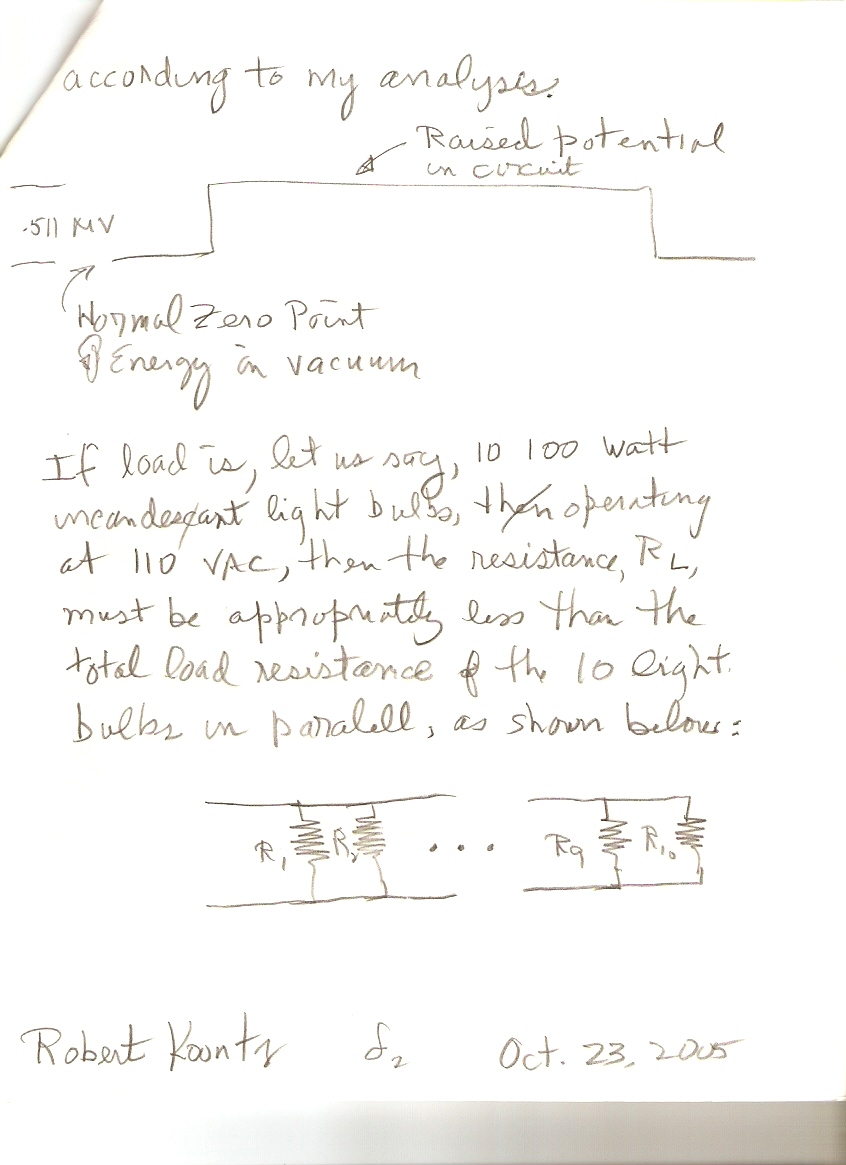 according to my analysis.
Raised potential
in circuit
.511 MV
Normal Zero Point
Energy in vacuum
If load is, let us say, 10 100 watt
incandescant light bulbs, then operating
at 110 VAC, then the resistance, RL,
must be appropriately less than the
total load resistance of the 10 light
bulbs in paralell, as shown below:
R1 R2 . . . R9 R10
Robert Koontz 2 Oct. 23, 2005